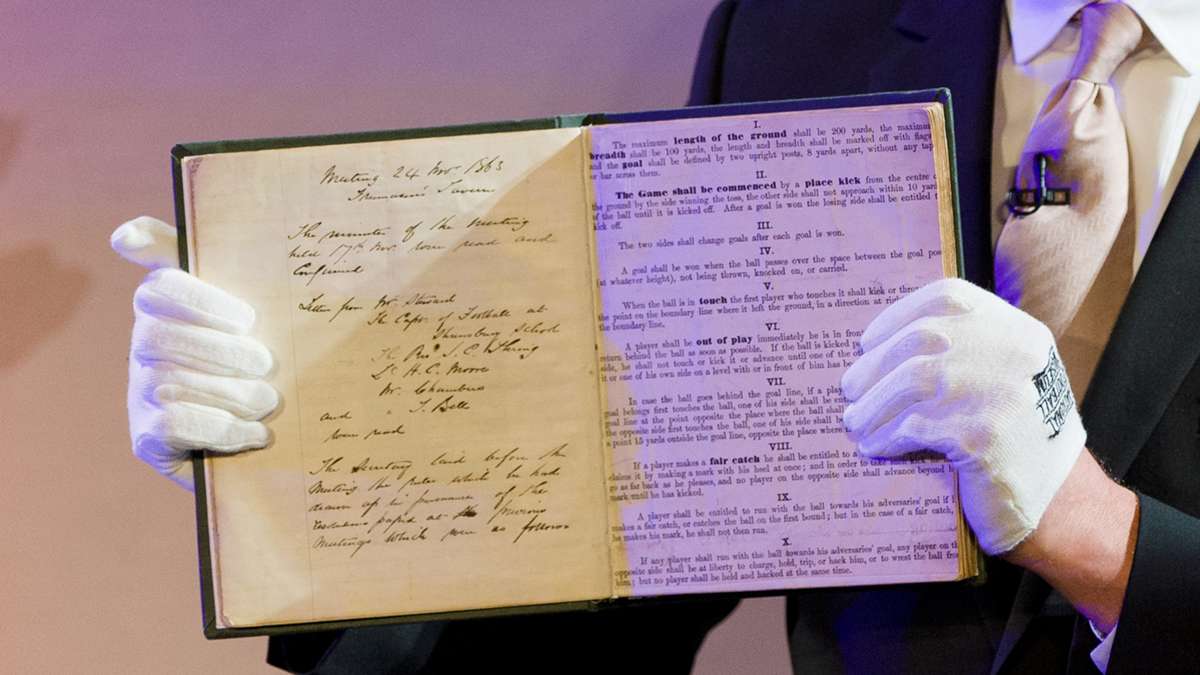 Meeting 24 Nov 1863
Freemason's Tavern
The minutes of the Meeting
held 17th Nov. were read and
Confirmed
Letters from Mr. Steward
The Capt. of Football at
Shrewsbury School
The Revd. J. C. Thring
Dr. H. C. Moore
Mr. Chambers
and " J. Bell
were read
The Secretary laid before the
Meeting the rules which he had
drawn up in pursuance of the
resolutions passed at the previous
Meetings which were as follows
I.
The maximum length of the ground shall be 200 yards, the maximum
breadth shall be 100 yards, the length and breadth shall be marked off with flags
and the goal shall be defined by two upright posts, 8 yards apart, without any tap
or bar across them.
II.
The Game shall be commenced by a place kick from the centre
the ground by the side winning the toss, the other side shall not approach within 10 yard
of the ball until it is kicked off. After a goal is won the losing side shall be entitled t
kick off.
III.
The two sides shall change goals after each goal is won.
IV.
A goal shall be won when the ball passes over the space between the goal pos
(at whatever height), not being thrown, knocked on, or carried.
V.
When the ball is in touch the first player who touches it shall kick or throw
the point on the boundary line where it left the ground, in a direction at rig
the boundary line.
VI.
A player shall be out of play immediately he is in front
return behind the ball as soon as possible. If the ball is kicked p
side, he shall not touch or kick it or advance until one of the o
it or one of his own side on a level with or in front of him has be
VII.
In case the ball goes behind the goal line, if a play
goal belongs first touches the ball, one of his side shall be ent
goal line at the point opposite the place where the ball shall
the opposite side first touches the ball, one of his side shall b
a point 15 yards outside the goal line, opposite the place where
VIII.
If a player makes a fair catch he shall be entitled to a
claims it by making a mark with his heel at once; and in order to take
go as far back as he pleases, and no player on the opposite side shall advance beyond h
mark until he has kicked.
IX.
A player shall be entitled to run with the ball towards his adversaries' goal if h
makes a fair catch, or catches the ball on the first bound; but in the case of a fair catch,
he makes his mark, he shall not then run.
X.
If any player shall run with the ball towards his adversaries' goal, any player on th
opposite side shall be at liberty to charge, hold, trip, or hack him, or to wrest the ball fro
him; but no player shall be held and hacked at the same time.